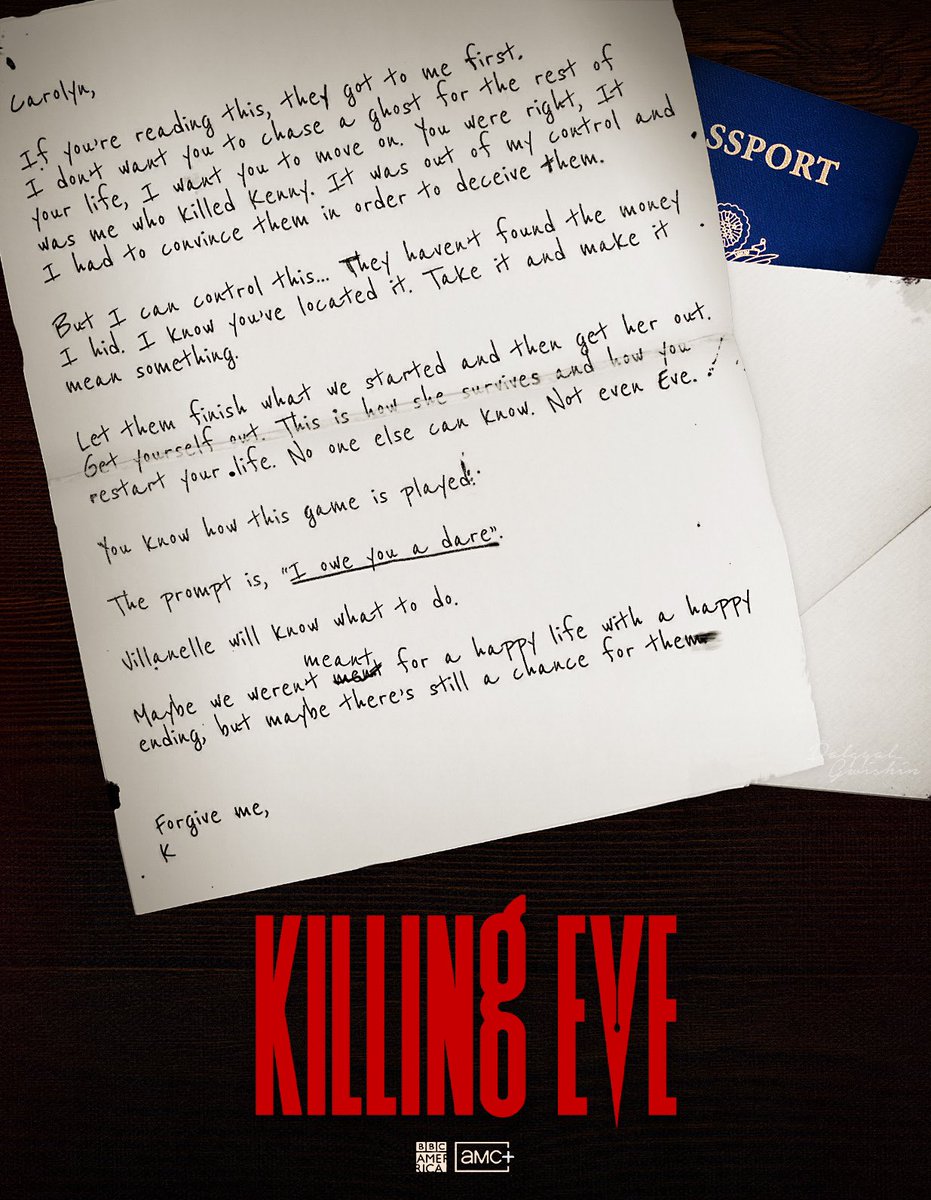 Carolyn,
If you're reading this, they got to me first.
I don't want you to chase a ghost for the rest of
your life, I want you to move on. You were right, It
was me who killed Kenny. It was out of my control and
I had to convince them in order to deceive them.
But I can control this... They haven't found the money
I hid. I know you've located it. Take it and make it
mean something.
Let them finish what we started and then get her out.
Get yourself out. This is how she survives and how you
restart your life. No one else can know. Not even Eve.
You know how this game is played.
The prompt is, "I owe you a dare".
Villanelle will know what to do.
meant
Maybe we weren't for a happy life with a happy
ending, but maybe there's still a chance for them
Forgive me,
K
SSPORT
Gwishin
KILLING EVE
BBC
AMERICA
amc+